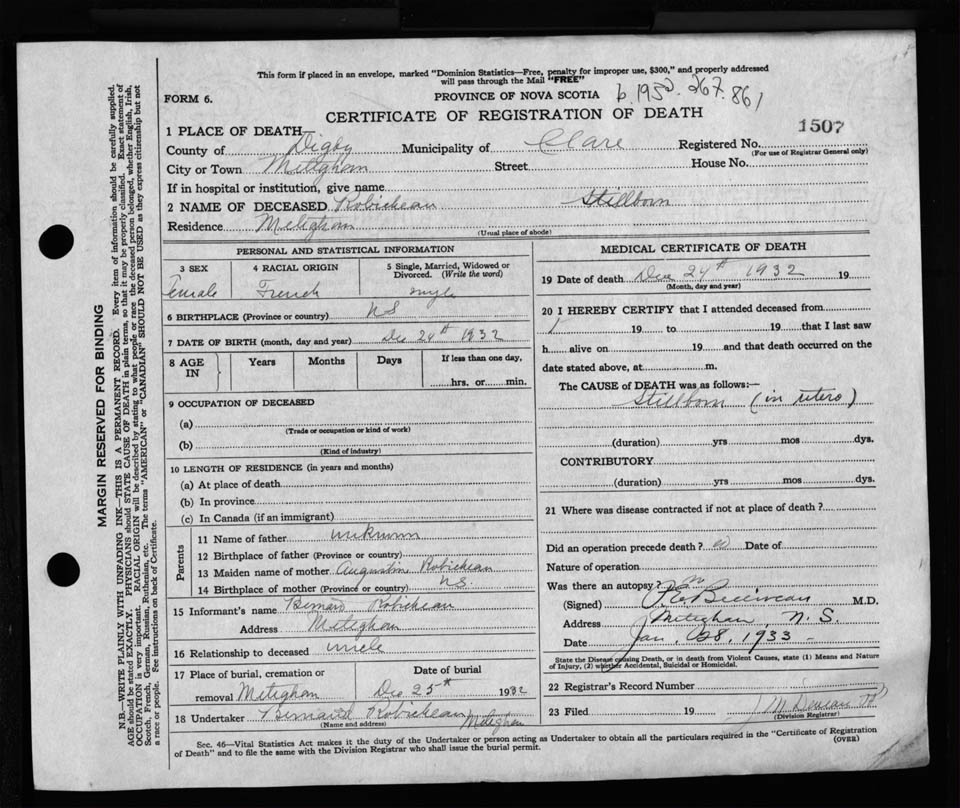 This form if placed in an envelope, marked "Dominion Statistics—Free, penalty for improper use, $300," and properly addressed
will pass through the Mail "FREE"
FORM 6.
PROVINCE OF NOVA SCOTIA b.1932.267.861
CERTIFICATE OF REGISTRATION OF DEATH
1507
1 PLACE OF DEATH
County of Digby Municipality of Clare Registered No.
(For use of Registrar General only)
City or Town Meteghan Street House No.
If in hospital or institution, give name
2 NAME OF DECEASED Robicheau Stillborn
Residence Meteghan
(Usual place of abode)
PERSONAL AND STATISTICAL INFORMATION
3 SEX 4 RACIAL ORIGIN 5 Single, Married, Widowed or
Divorced. (Write the word)
Female French single
6 BIRTHPLACE (Province or country) NS
7 DATE OF BIRTH (month, day and year) Dec 24th 1932
8 AGE IN Years Months Days If less than one day,
hrs. or min.
9 OCCUPATION OF DECEASED
(a)
(Trade or occupation or kind of work)
(b)
(Kind of industry)
10 LENGTH OF RESIDENCE (in years and months)
(a) At place of death
(b) In province
(c) In Canada (if an immigrant)
Parents
11 Name of father unknown
12 Birthplace of father (Province or country)
13 Maiden name of mother Augustine Robicheau
14 Birthplace of mother (Province or country) NS
15 Informant's name Bernard Robicheau
Address Meteghan
16 Relationship to deceased uncle
17 Place of burial, cremation or Date of burial
removal Meteghan Dec 25th 1932
18 Undertaker Bernard Robicheau Meteghan
(Name and address)
MEDICAL CERTIFICATE OF DEATH
19 Date of death Dec 24th 1932 19
(Month, day and year)
20 I HEREBY CERTIFY that I attended deceased from
19 to 19 that I last saw
h alive on 19 and that death occurred on the
date stated above, at m.
The CAUSE of DEATH was as follows:—
Stillborn (in utero)
(duration) yrs mos dys.
CONTRIBUTORY
(duration) yrs mos dys.
21 Where was disease contracted if not at place of death?
Did an operation precede death? Date of
Nature of operation
Was there an autopsy?
(Signed) Belliveau M.D.
Address Meteghan, N. S.
Date Jan. 28. 1933
State the Disease causing Death, or in death from Violent Causes, state (1) Means and Nature
of Injury, (2) whether Accidental, Suicidal or Homicidal.
22 Registrar's Record Number
23 Filed 19
(Division Registrar)
Sec. 46—Vital Statistics Act makes it the duty of the Undertaker or person acting as Undertaker to obtain all the particulars required in the "Certificate of Registration
of Death" and to file the same with the Division Registrar who shall issue the burial permit. (OVER)
MARGIN RESERVED FOR BINDING
N.B.—WRITE PLAINLY WITH UNFADING INK—THIS IS A PERMANENT RECORD. Every item of information should be carefully supplied.
AGE should be stated EXACTLY. PHYSICIANS should STATE CAUSE OF DEATH in plain terms, so that it may be properly classified. Exact statement of
OCCUPATION is very important. RACIAL ORIGIN will be described by stating to what people or race the deceased person belonged, whether English, Irish,
Scotch, French, German, Russian, Ruthenian, etc. The terms "AMERICAN" or "CANADIAN" SHOULD NOT BE USED as they express citizenship but not
a race or people. See instructions on back of Certificate.